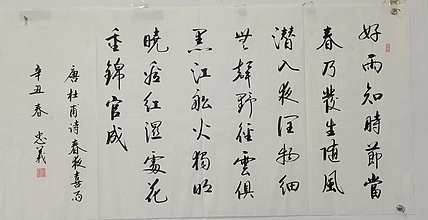 好雨知時節當
春乃發生随風
潜入夜潤物細
無聲野徑雲俱
黑江船火獨明
曉看紅濕處花
重錦官成
唐杜甫诗春夜喜雨
辛丑春忠義